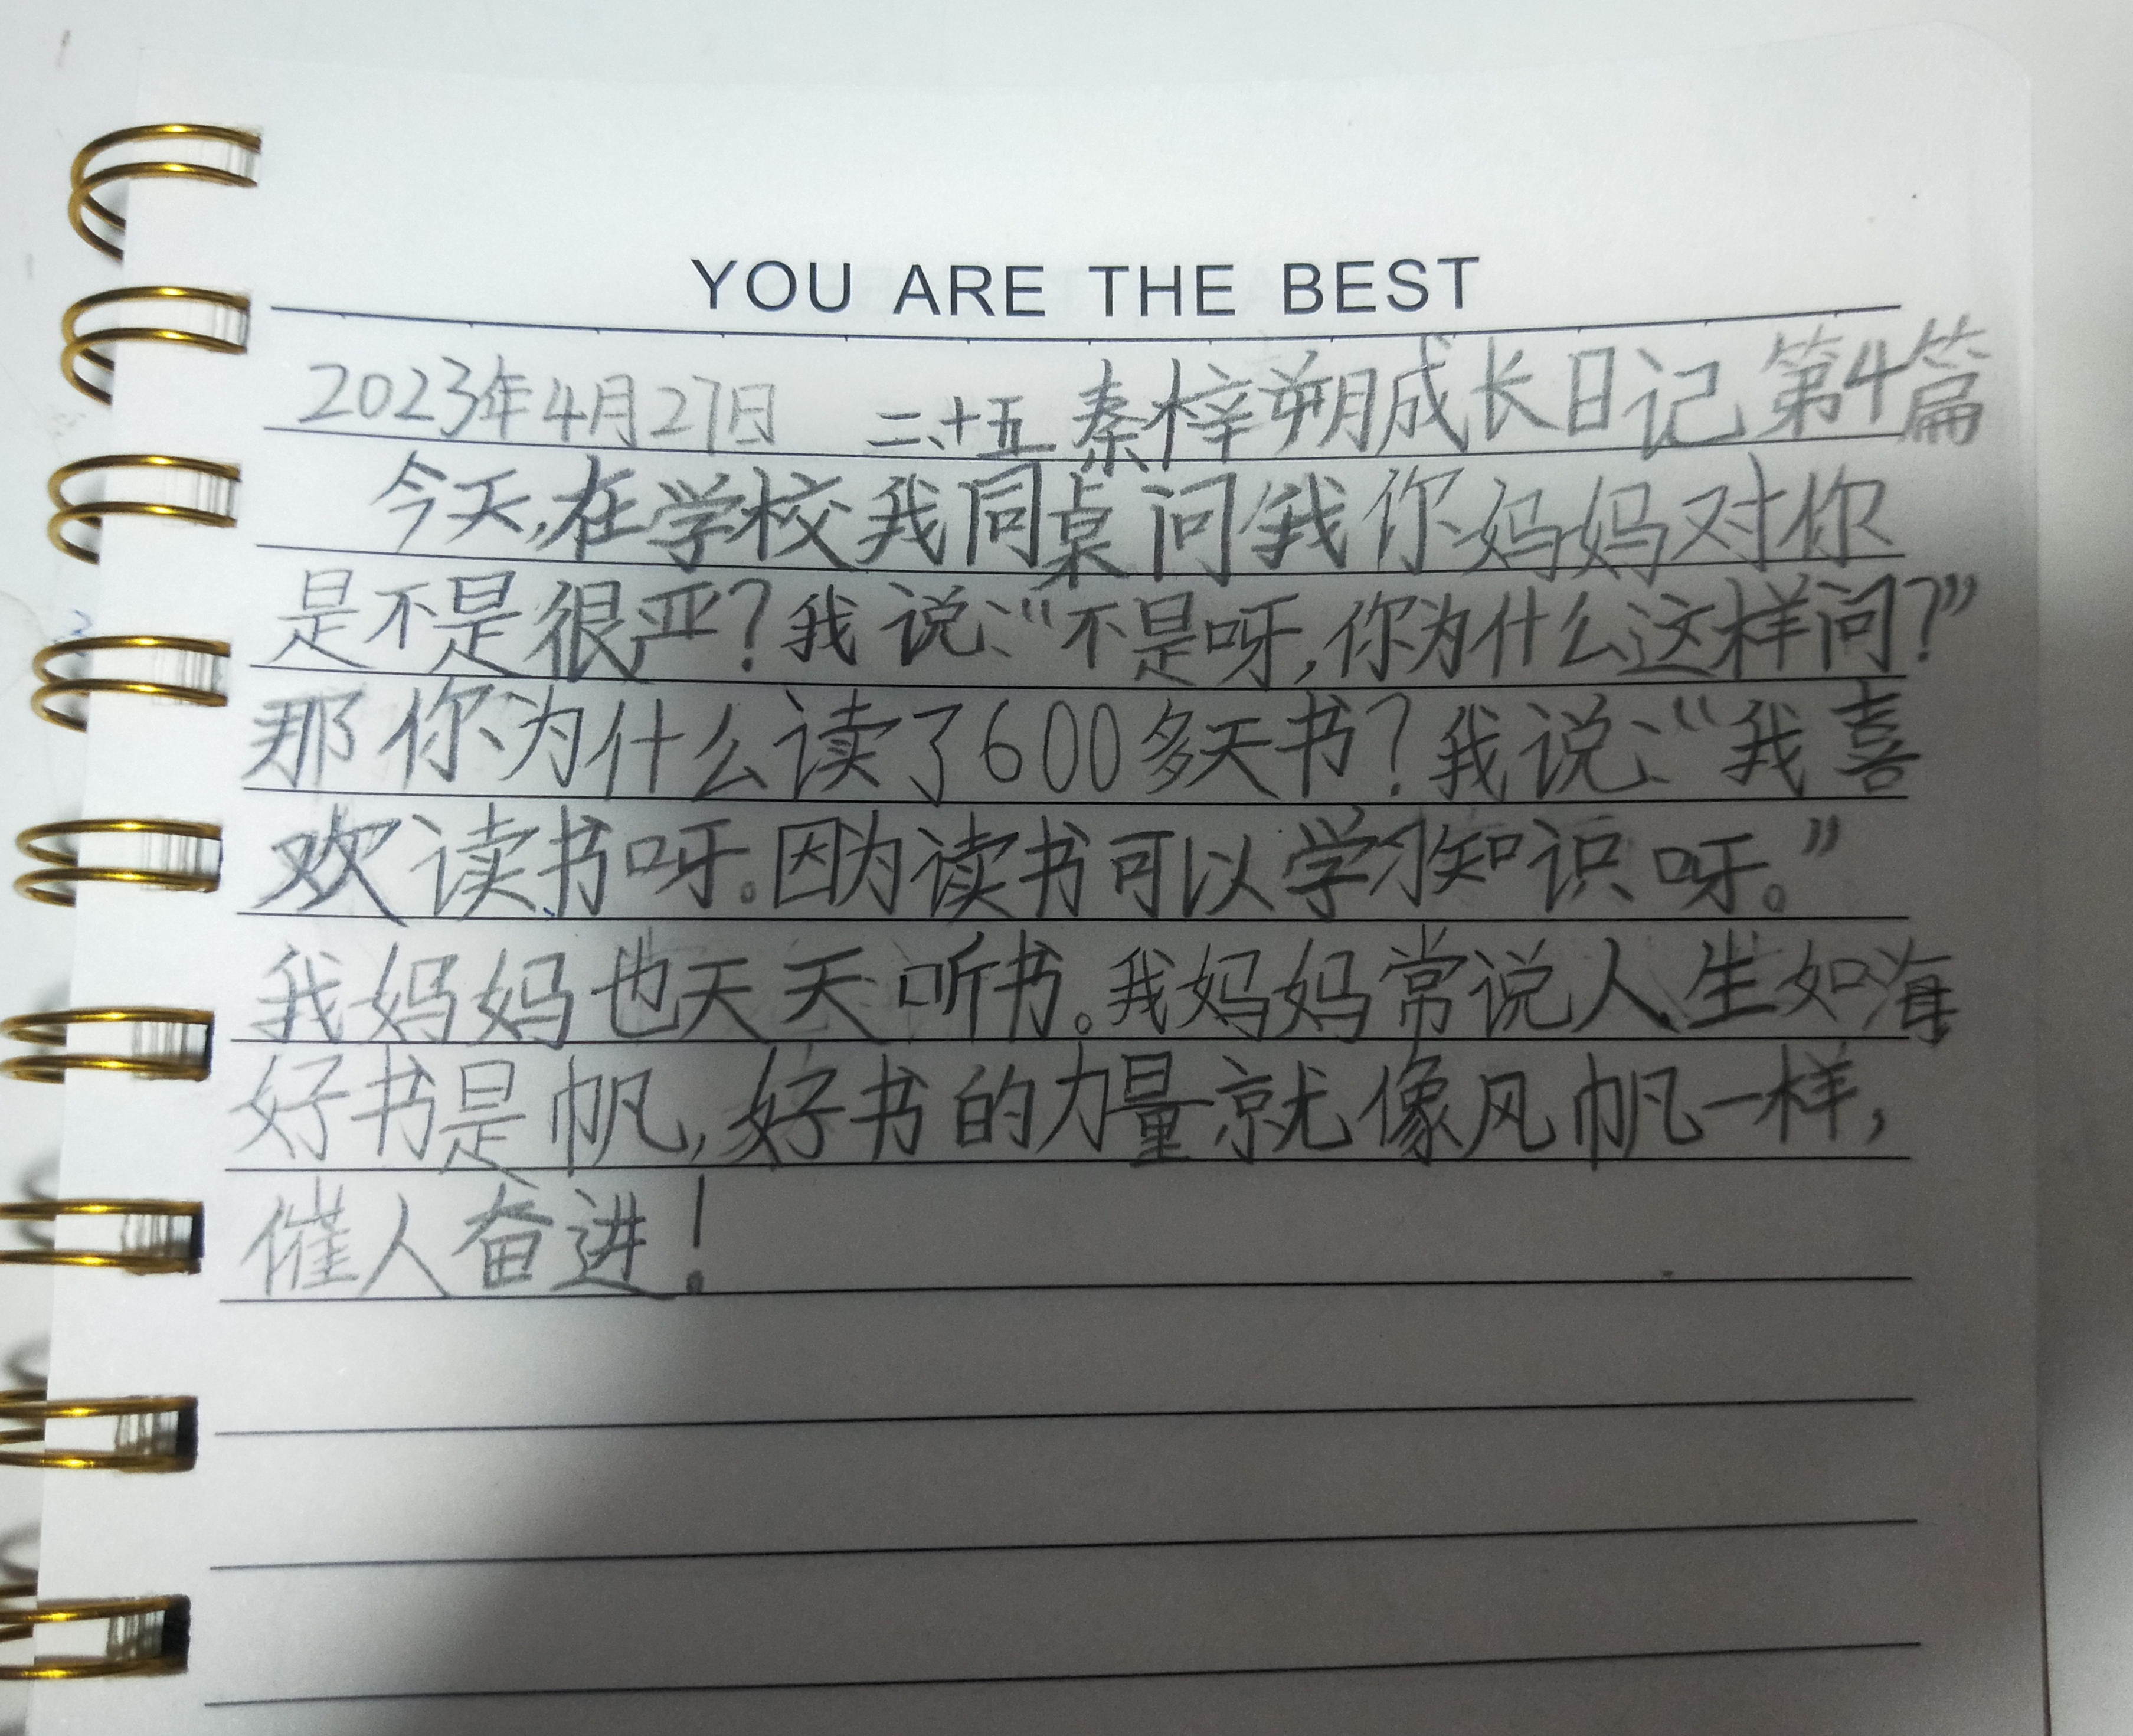 YOU ARE THE BEST
2023年4月27日 二、十五 秦梓朔成长日记 第4篇
今天,在学校我同桌问我你妈妈对你
是不是很严?我说:“不是呀,你为什么这样问?”
那你为什么读了600多天书?我说:“我喜
欢读书呀。因为读书可以学习知识呀。”
我妈妈也天天听书。我妈妈常说人生如海
好书是帆,好书的力量就像风帆一样,
催人奋进!